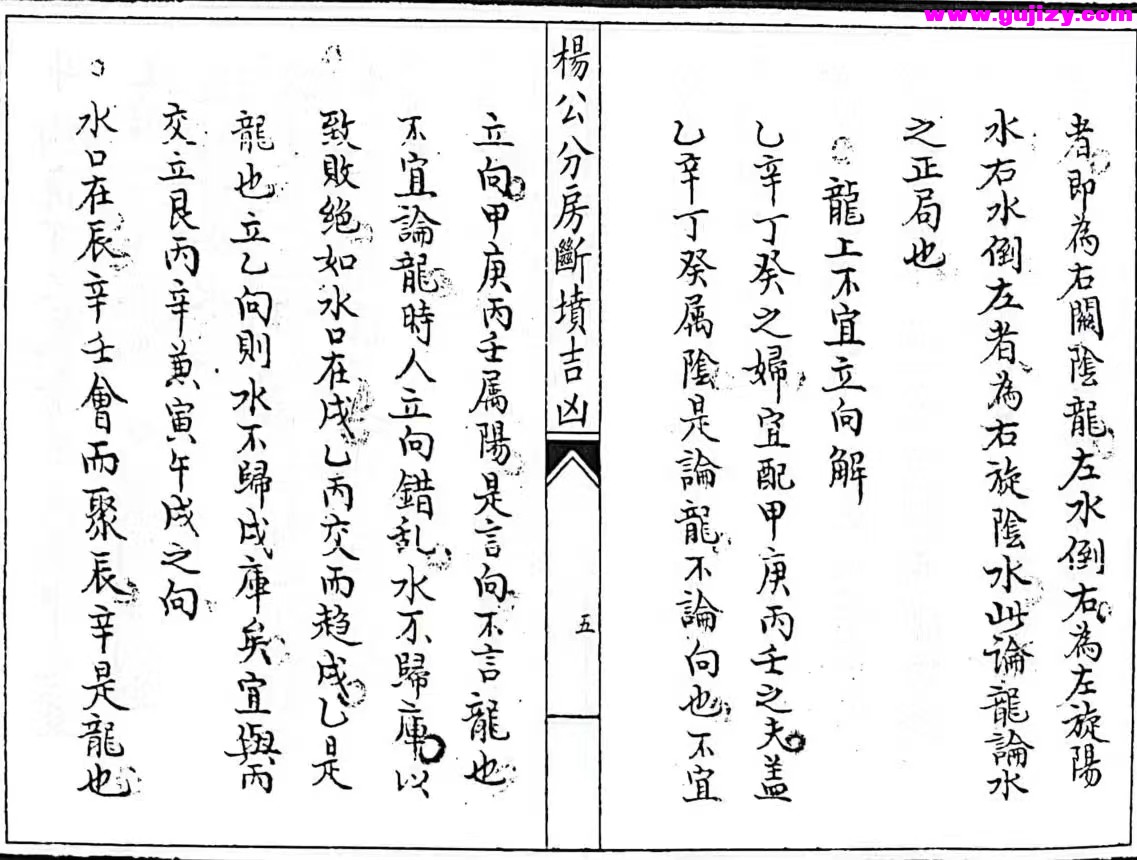 www.gujizy.com
者即為右關陰龍左水倒右為左旋陽
水右水倒左者為右旋陰水此論龍論水
之正局也
龍上不宜立向解
乙辛丁癸之婦宜配甲庚丙壬之夫盖
乙辛丁癸属陰是論龍不論向也不宜
楊公分房斷墳吉凶
五
立向甲庚丙壬属陽是言向不言龍也
不宜論龍時人立向錯乱水不歸庫以
致敗絕如水口在戌乙丙交而趋戌乙是
龍也立乙向則水不歸戌庫矣宜與丙
交立艮丙辛兼寅午戌之向
水口在辰辛壬會而聚辰辛是龍也